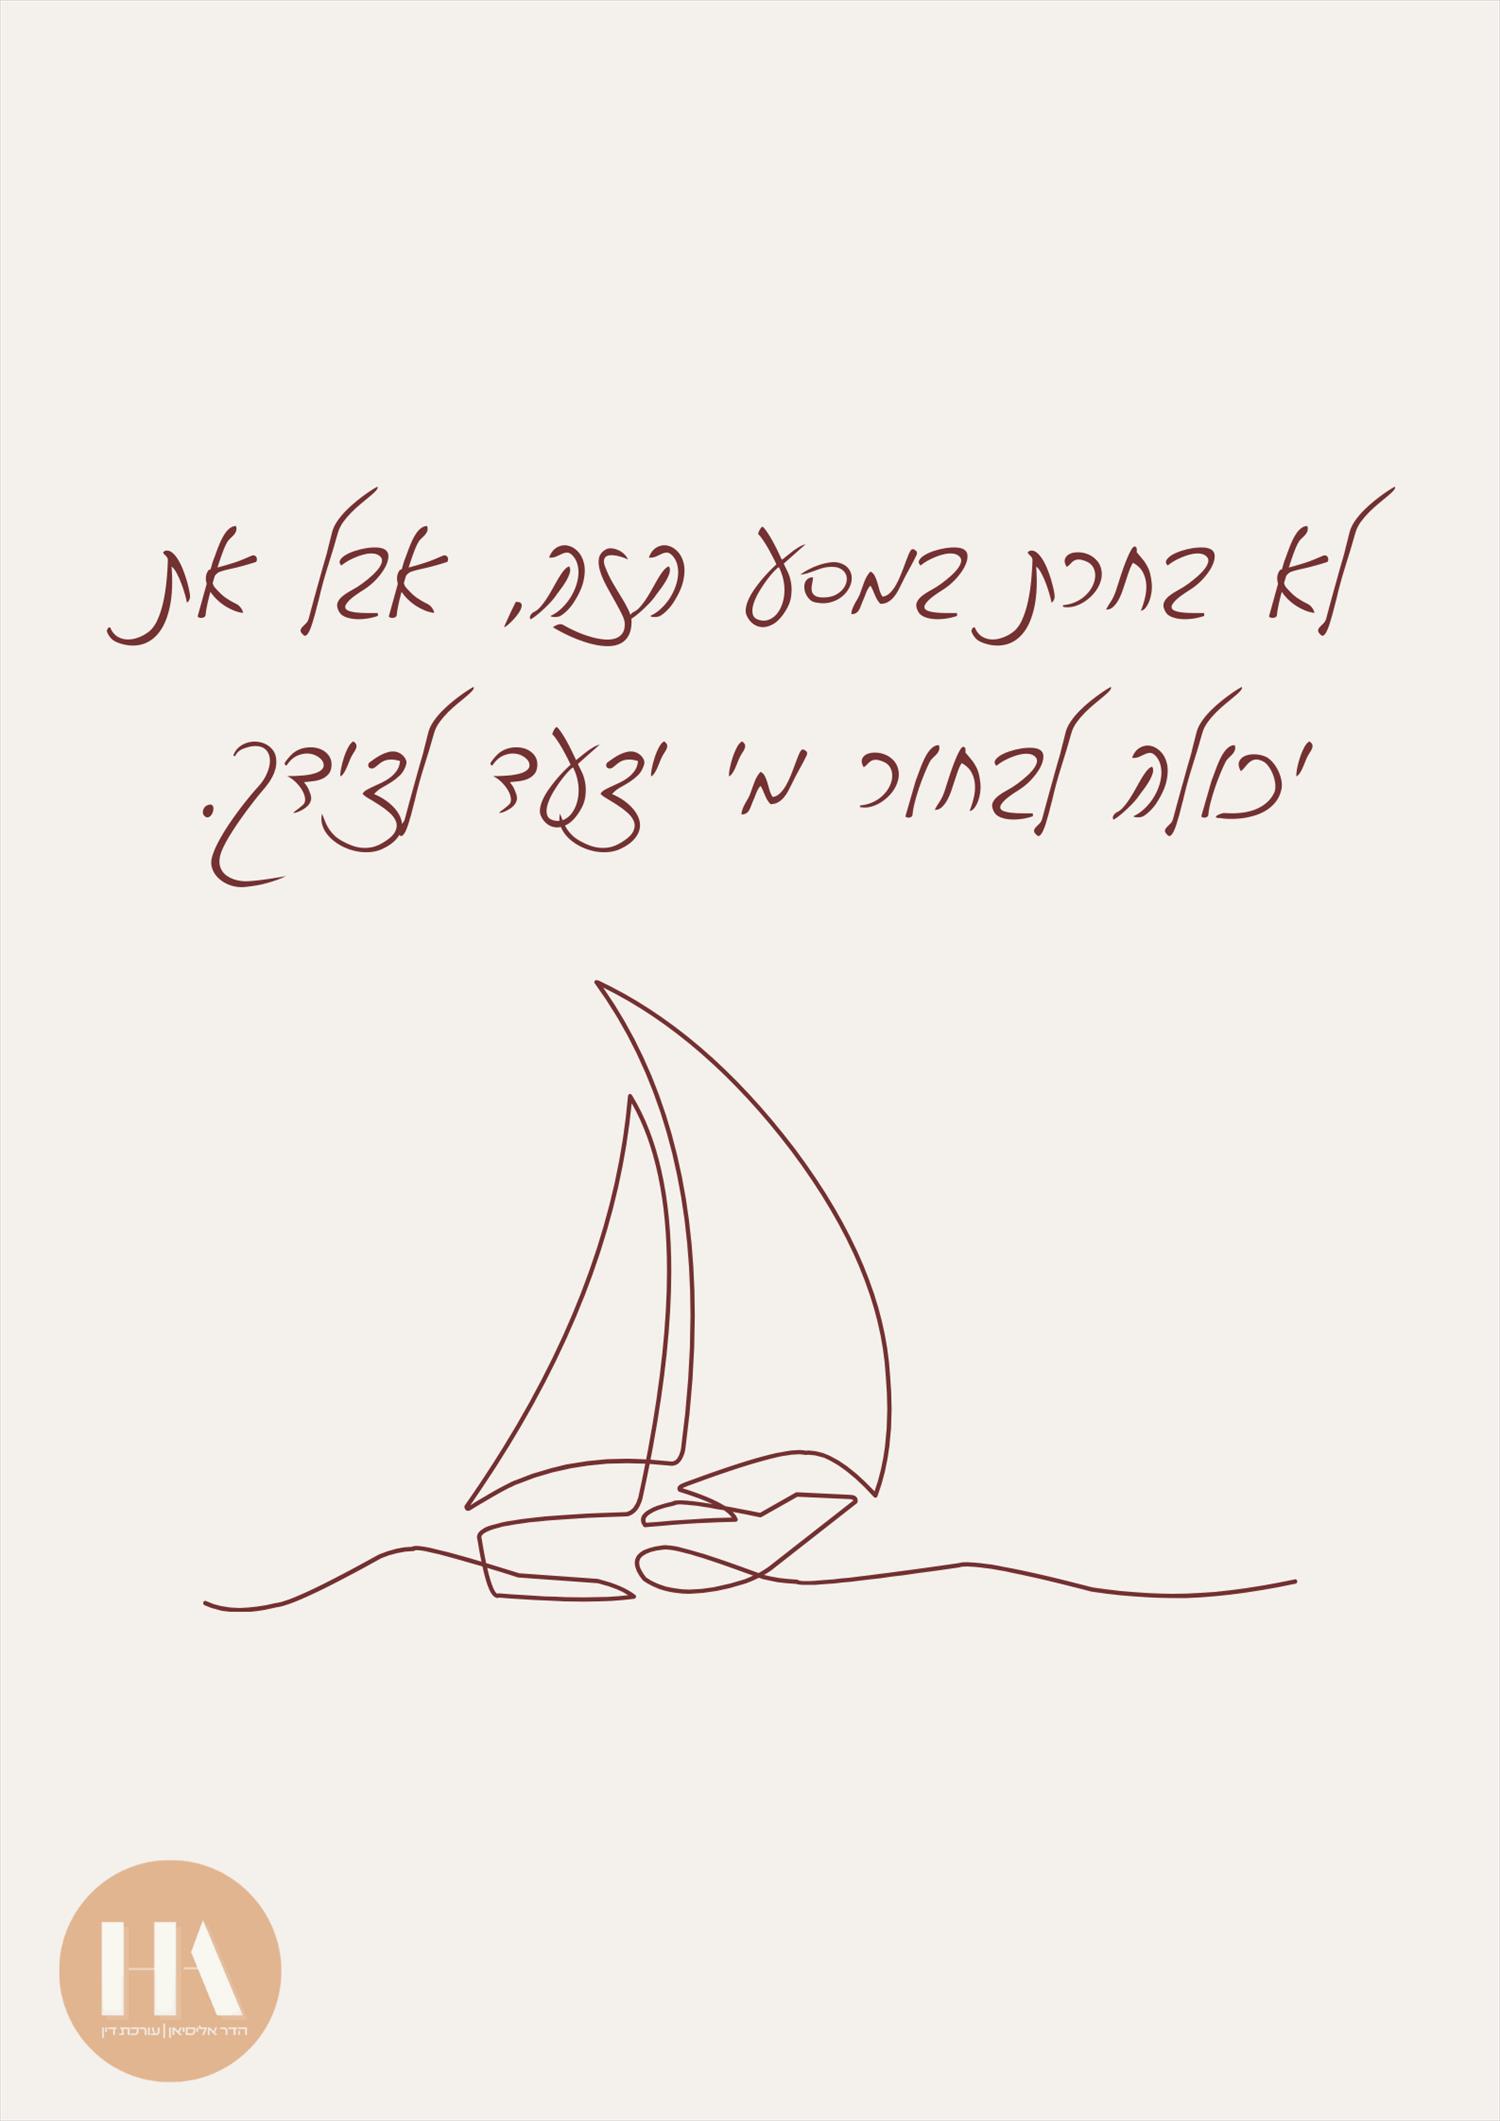 לא בחרת במסע הזה, אבל את
יכולה לבחור מי יצעד לצידך.
HA
הדר אליסיאן | עורכת דין